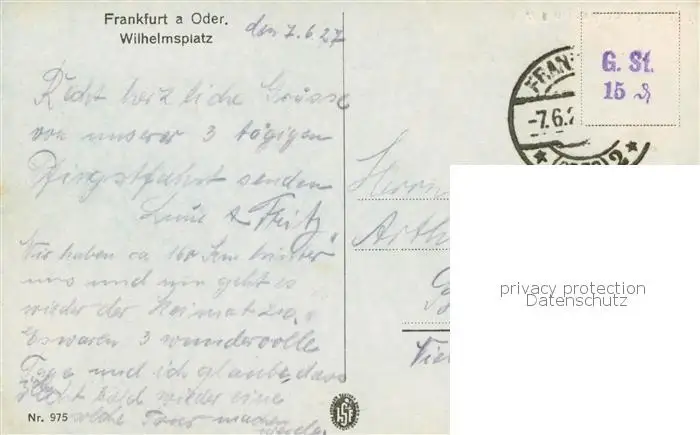 Frankfurt a Oder.
Wilhelmsplatz
den 7.6.27
Recht herzliche Grüsse
von unserer 3 tägigen
Pfingstfahrt senden
& Fritz
Wir haben ca 160 Km hinter
uns und nun geht es
wieder der Heimat zu.
Es waren 3 wundervolle
Tage und ich glaube, dass
bald wieder eine
solche Tour machen
werde
Nr. 975
G. St.
15 ₰
FRAN
-7.6.2
2
Herrn
Arth
privacy protection
Datenschutz